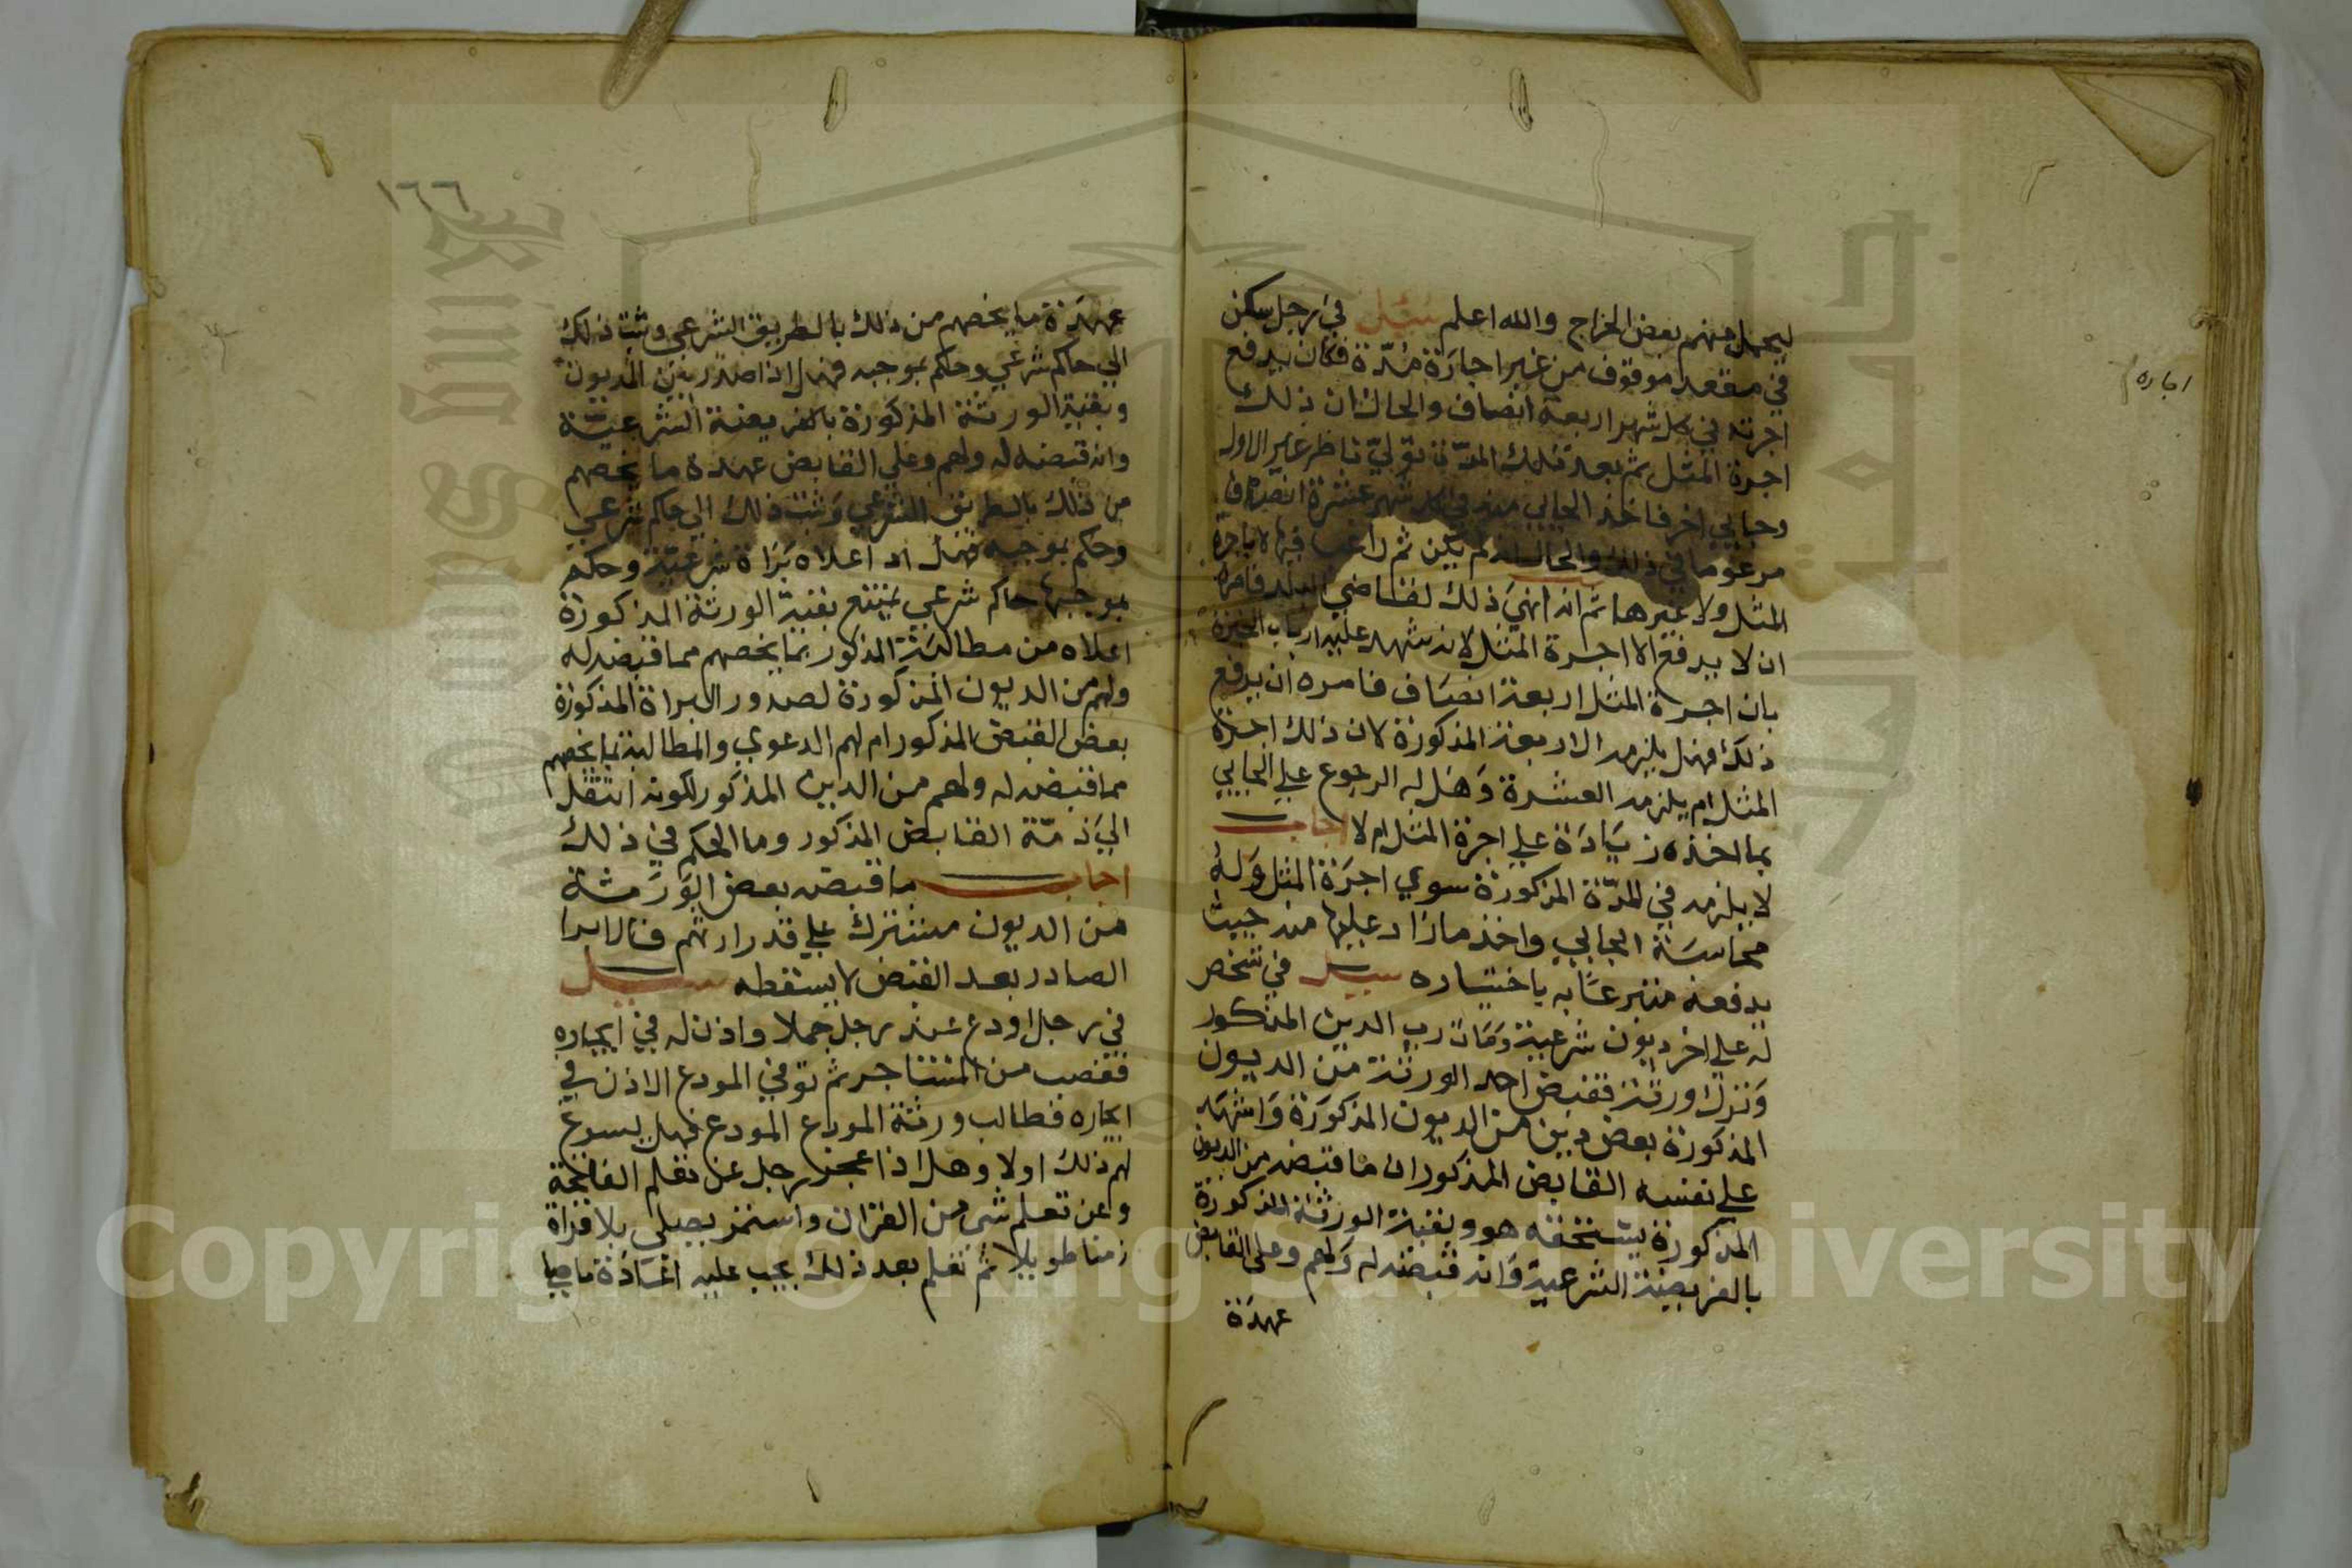 ليحمل منهم بعض الخراج والله اعلم سئل في رجل سكن
في مقعد موقوف من غير اجارة مدة فكان يدفع
اجرته في كل شهر اربعة انصاف والحال ان ذلك
اجرة المثل ثم بعد تلك المدة تولي ناظر غير الاول
وجابي اخر فاخذ الجابي منه في كل شهر عشرة انصاف
في ذلك والحال انه لم يكن ثم راغب فيها لا باجرة
المثل ولا غيرها ثم انه انهي ذلك لقاضي البلد فامره
ان لا يدفع الا اجرة المثل لانه شهد عليه ارباب الخبرة
بان اجرة المثل اربعة انصاف فامره ان يدفع
ذلك فهل يلزمه الاربعة المذكورة لان ذلك اجرة
المثل ام يلزمه العشرة وهل له الرجوع علي الجابي
بما اخذه زيادة علي اجرة المثل ام لا اجاب
لا يلزمه في المدة المذكورة سوي اجرة المثل وله
محاسبة الجابي واخذ ما زاد عليها منه حيث
يدفعه متبرعا به باختياره سئل في شخص
له علي اخر ديون شرعية ومات رب الدين المذكور
وترك ورثة فقبض احد الورثة من الديون
المذكورة بعض دين من الديون المذكورة واشهد
علي نفسه القابض المذكور ان ما قبضه من الديون
المذكورة يستحقه هو وبقية الورثة المذكورة
بالفريضة الشرعية وانه قبضه له ولهم وعلي القابض
عهدة
اجاره
١٦٦
عهدة ما يخصهم من ذلك بالطريق الشرعي وثبت ذلك
الي حاكم شرعي وحكم بموجبه فهل اذا صدر بين المديون
وبقية الورثة المذكورة بالفريضة الشرعية
وانه قبضه له ولهم وعلي القابض عهدة ما يخصهم
من ذلك بالطريق الشرعي وثبت ذلك الي حاكم شرعي
وحكم بموجبه فهل اد اعلاه براة شرعية وحكم
بموجبها حاكم شرعي يمتنع بقية الورثة المذكورة
اعلاه من مطالبة المذكور بما يخصهم مما قبضه له
ولهم من الديون المذكورة لصدور البراة المذكورة
بعض القبض المذكور ام لهم الدعوي والمطالبة بما يخصهم
مما قبضه له ولهم من الدين المذكور لكونه انتقل
الي ذمة القابض المذكور وما الحكم في ذلك
اجاب ما قبضه بعض الورثة
من الديون مشترك علي قدر ارثهم فالابرا
الصادر بعد القبض لا يسقطه سئل
في رجل اودع عند رجل جملا واذن له في ايجاره
فغصب من المستاجر ثم توفي المودع الاذن في
ايجاره فطالب ورثة المودع المودع فهل يسوغ
لهم ذلك اولا وهل اذا عجز رجل عن تعلم الفاتحة
وعن تعلم شي من القران واستمر يصلي بلا قراة
زمنا طويلا ثم تعلم بعد ذلك يجب عليه اعادة ما صلي
Copyright © King Saud University